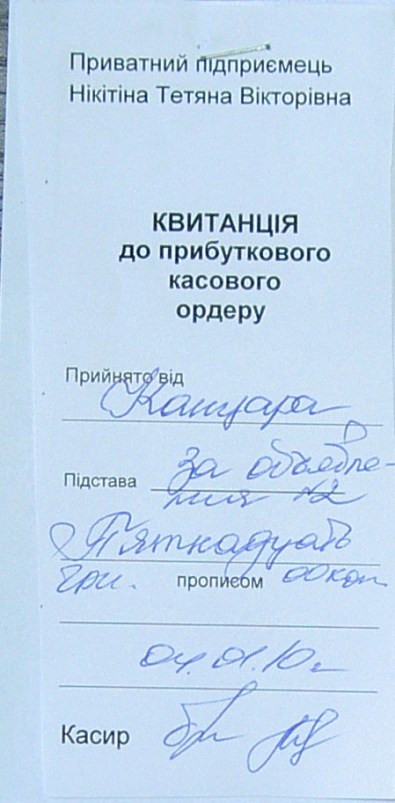 Приватний підприємець
Нікітіна Тетяна Вікторівна
КВИТАНЦІЯ
до прибуткового
касового
ордеру
Прийнято від
Підстава За объявле-
ния №2
П'ятнадцать
грн. прописом 00 коп
04.01.10г
Касир